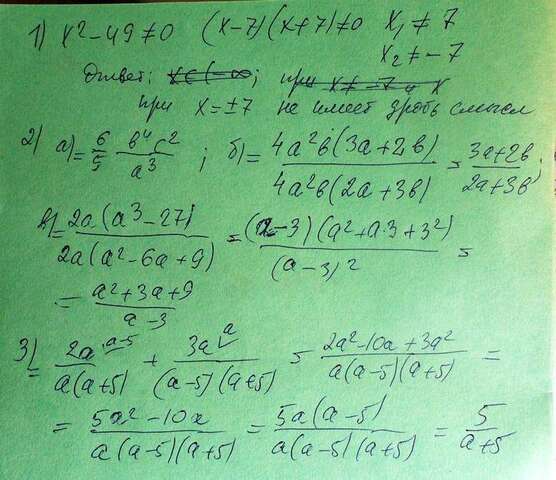 1) x² - 49 ≠ 0 (x-7)(x+7) ≠ 0 x₁ ≠ 7
x₂ ≠ -7
Ответ: x ∈ (-∞; при x ≠ -7 и x
при x = ±7 не имеет дробь смысл
2) а) = 6/5 b⁴c²/a³ ; б) = 4a²b(3a+2b)/4a²b(2a+3b) = 3a+2b/2a+3b ;
в) = 2a(a³-27)/2a(a²-6a+9) = (a-3)(a²+a·3+3²)/(a-3)² =
= a²+3a+9/a-3
3) = 2a^(a-5)/a(a+5) + 3a^(a)/(a-5)(a+5) = 2a²-10a+3a²/a(a-5)(a+5) =
= 5a²-10a/a(a-5)(a+5) = 5a(a-5)/a(a-5)(a+5) = 5/a+5